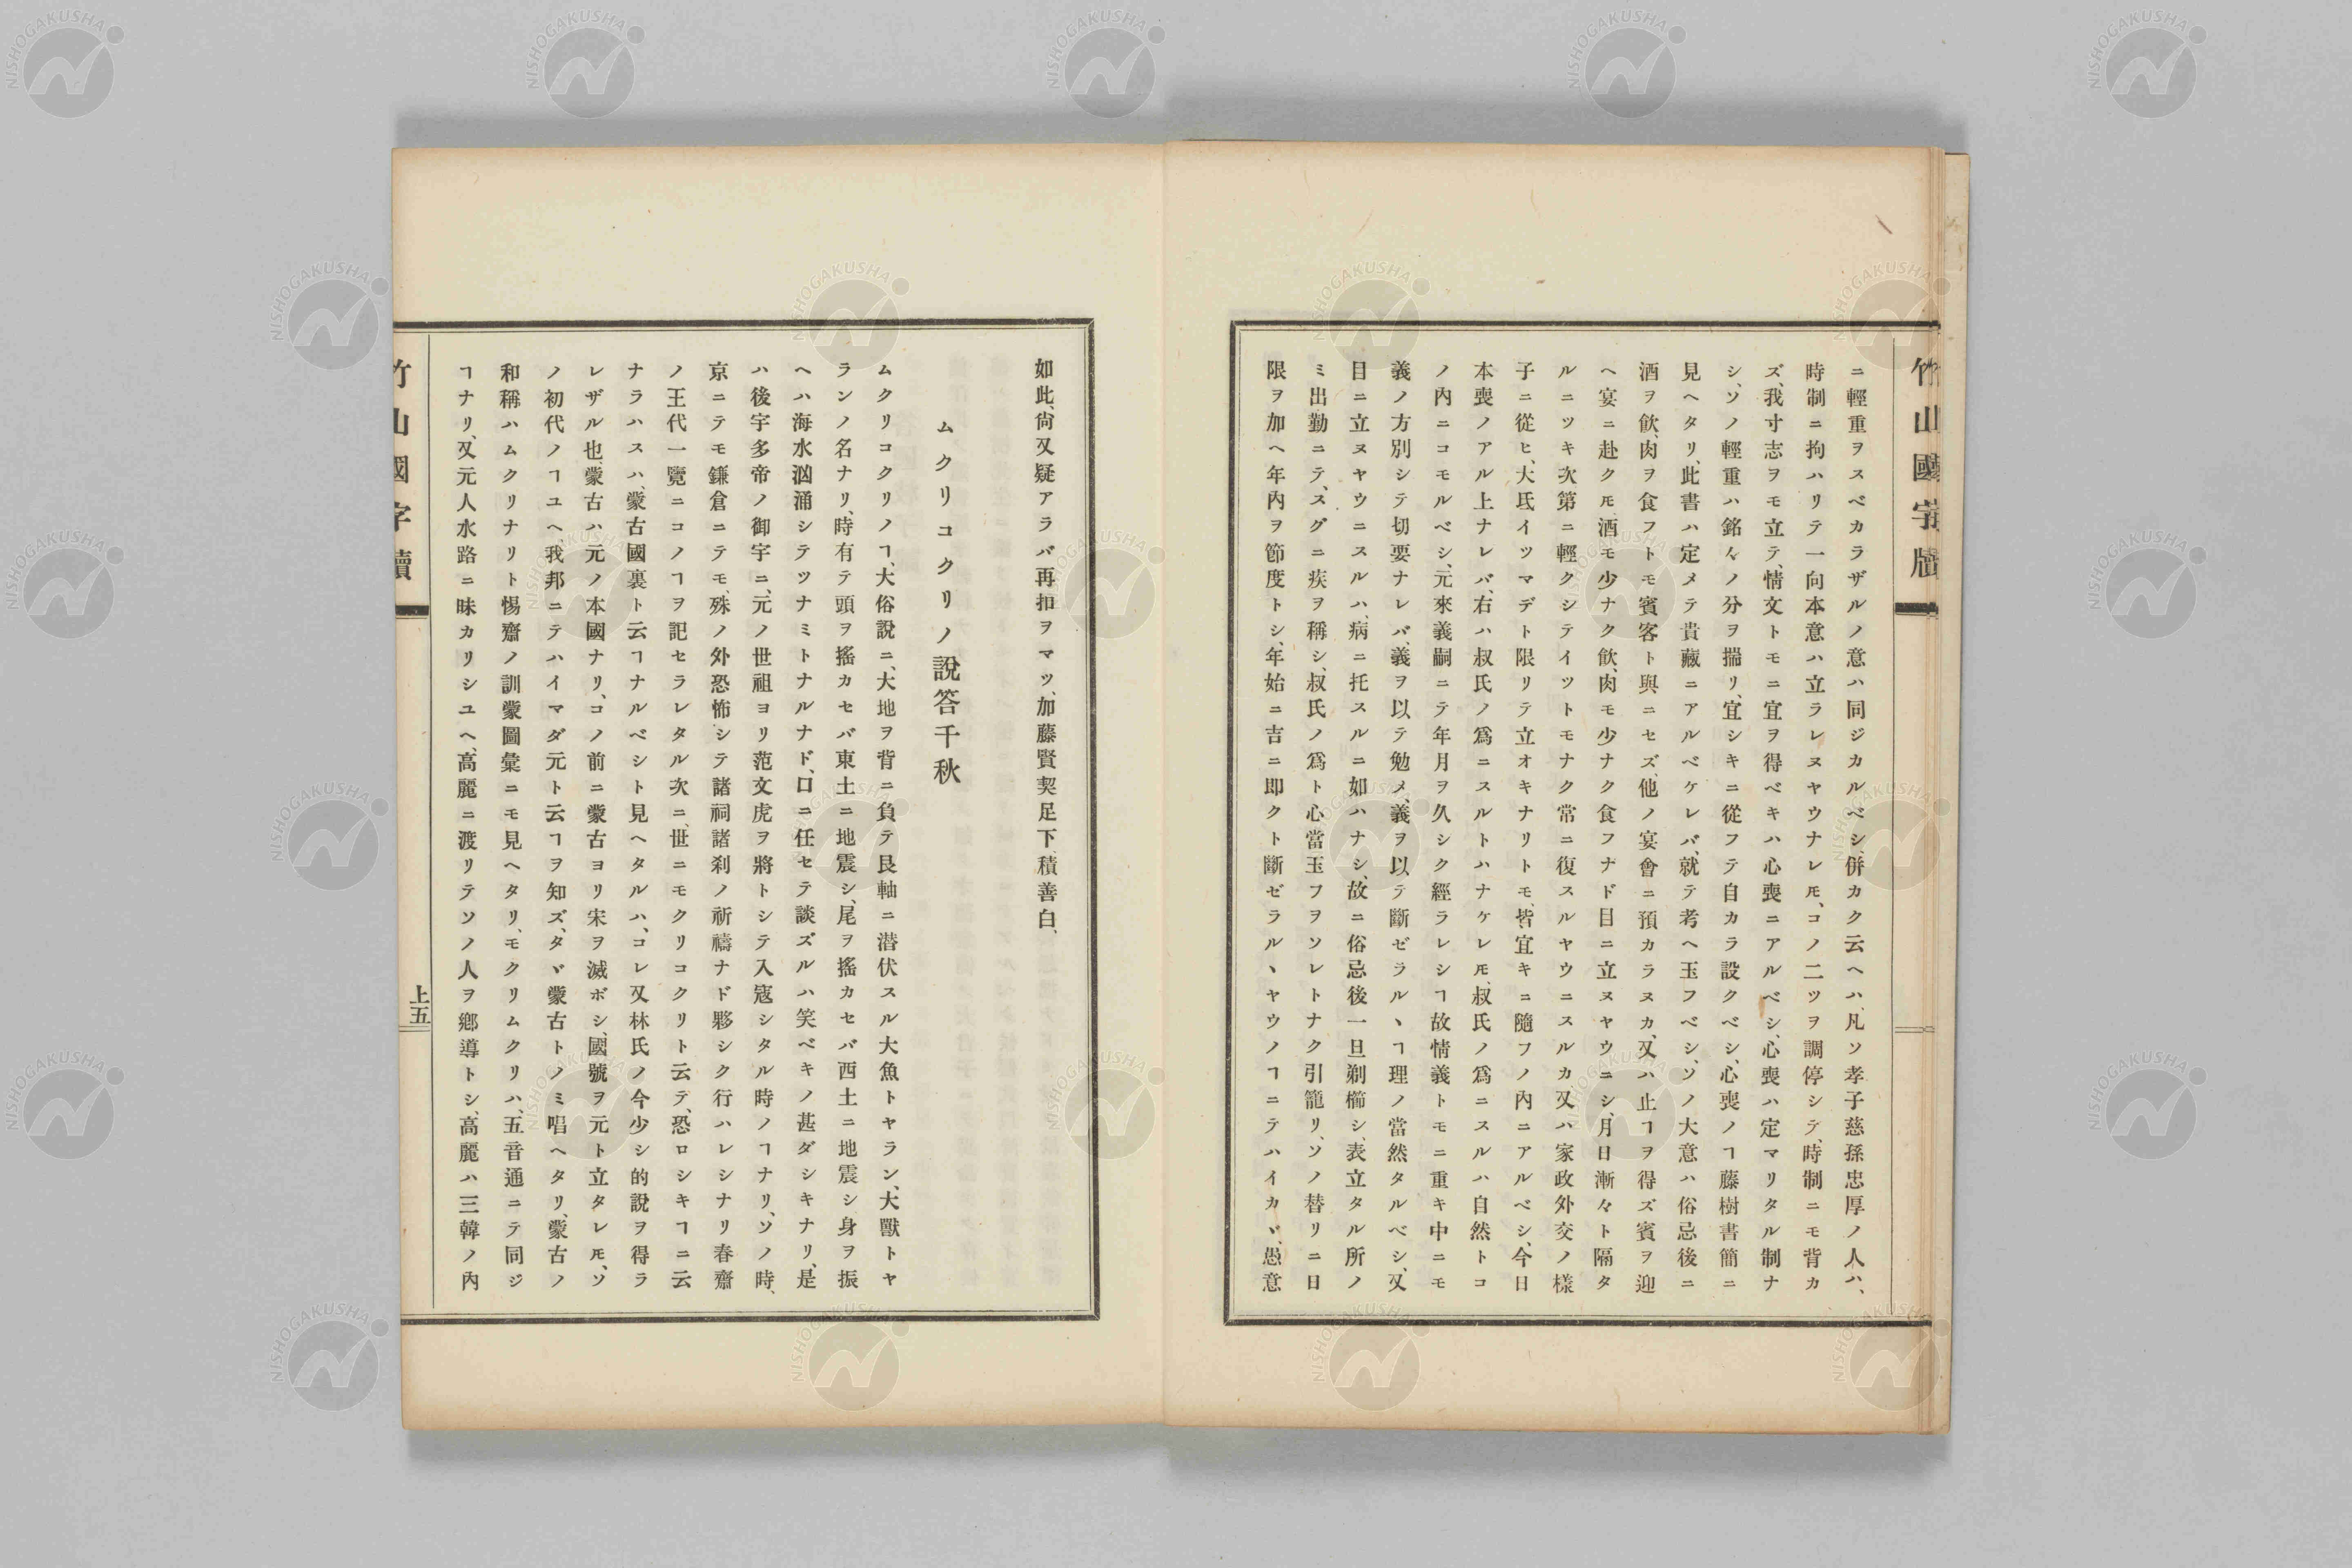 竹山國字牘
ニ輕重ヲスベカラザルノ意ハ同ジカルベシ、併カク云ヘハ、凡ソ孝子慈孫忠厚ノ人ハ、
時制ニ拘ハリテ一向本意ハ立ラレヌヤウナレ𪜈、コノ二ツヲ調停シテ、時制ニモ背カ
ズ、我寸志ヲモ立テ、情文トモニ宜ヲ得ベキハ心喪ニアルベシ、心喪ハ定マリタル制ナ
シ、ソノ輕重ハ銘々ノ分ヲ揣リ、宜シキニ從フテ自カラ設クベシ、心喪ノヿ藤樹書簡ニ
見ヘタリ、此書ハ定メテ貴藏ニアルベケレバ、就テ考ヘ玉フベシ、ソノ大意ハ俗忌後ニ
酒ヲ飮、肉ヲ食フトモ賓客ト與ニセズ、他ノ宴會ニ預カラヌカ、又ハ止ヿヲ得ズ賓ヲ迎
ヘ宴ニ赴ク𪜈、酒モ少ナク飮、肉モ少ナク食フナド目ニ立ヌヤウニシ、月日漸々ト隔タ
ルニツキ次第ニ輕クシテイツトモナク常ニ復スルヤウニスルカ又ハ家政外交ノ樣
子ニ從ヒ、大氐イツマデト限リテ立オキナリトモ、皆宜キニ隨フノ內ニアルベシ、今日
本喪ノアル上ナレバ、右ハ叔氏ノ爲ニスルトハナケレ𪜈、叔氏ノ爲ニスルハ自然トコ
ノ內ニコモルベシ、元來義嗣ニテ年月ヲ久シク經ラレシヿ故情義トモニ重キ中ニモ
義ノ方別シテ切要ナレバ、義ヲ以テ勉メ、義ヲ以テ斷ゼラルヽヿ理ノ當然タルベシ、又
目ニ立ヌヤウニスルハ、病ニ托スルニ如ハナシ、故ニ俗忌後一旦剃櫛シ、表立タル所ノ
ミ出勤ニテ、スグニ疾ヲ稱シ、叔氏ノ爲ト心當玉フヲソレトナク引籠リ、ソノ替リニ日
限ヲ加ヘ年內ヲ節度トシ、年始ニ吉ニ即クト斷ゼラルヽヤウノヿニテハイカヾ、愚意
如此、尙又疑アラバ再扣ヲマツ、加藤賢契足下、積善白、
ムクリコクリノ說答千秋
ムクリコクリノヿ、大俗說ニ、大地ヲ背ニ負テ艮軸ニ潛伏スル大魚トヤラン、大獸トヤ
ランノ名ナリ、時有テ頭ヲ搖カセバ東土ニ地震シ、尾ヲ搖カセバ西土ニ地震シ身ヲ振
ヘハ海水洶涌シテツナミトナルナド、口ニ任セテ談ズルハ笑ベキノ甚ダシキナリ、是
ハ後宇多帝ノ御宇ニ、元ノ世祖ヨリ范文虎ヲ將トシテ入寇シタル時ノヿナリ、ソノ時、
京ニテモ鎌倉ニテモ、殊ノ外恐怖シテ諸祠諸刹ノ祈禱ナド夥シク行ハレシナリ春齋
ノ王代一覽ニコノヿヲ記セラレタル次ニ、世ニモクリコクリト云テ、恐ロシキヿニ云
ナラハスハ、蒙古國裏ト云ヿナルベシト見ヘタルハ、コレ又林氏ノ今少シ的說ヲ得ラ
レザル也、蒙古ハ元ノ本國ナリ、コノ前ニ蒙古ヨリ宋ヲ滅ボシ、國號ヲ元ト立タレ𪜈、ソ
ノ初代ノヿユヘ、我邦ニテハイマダ元ト云ヿヲ知ズ、タヾ蒙古トノミ唱ヘタリ、蒙古ノ
和稱ハムクリナリト惕齋ノ訓蒙圖彙ニモ見ヘタリ、モクリムクリハ、五音通ニテ同ジ
ヿナリ、又元人水路ニ昧カリシユヘ、高麗ニ渡リテソノ人ヲ鄕導トシ、高麗ハ三韓ノ內
竹山國字牘
上五